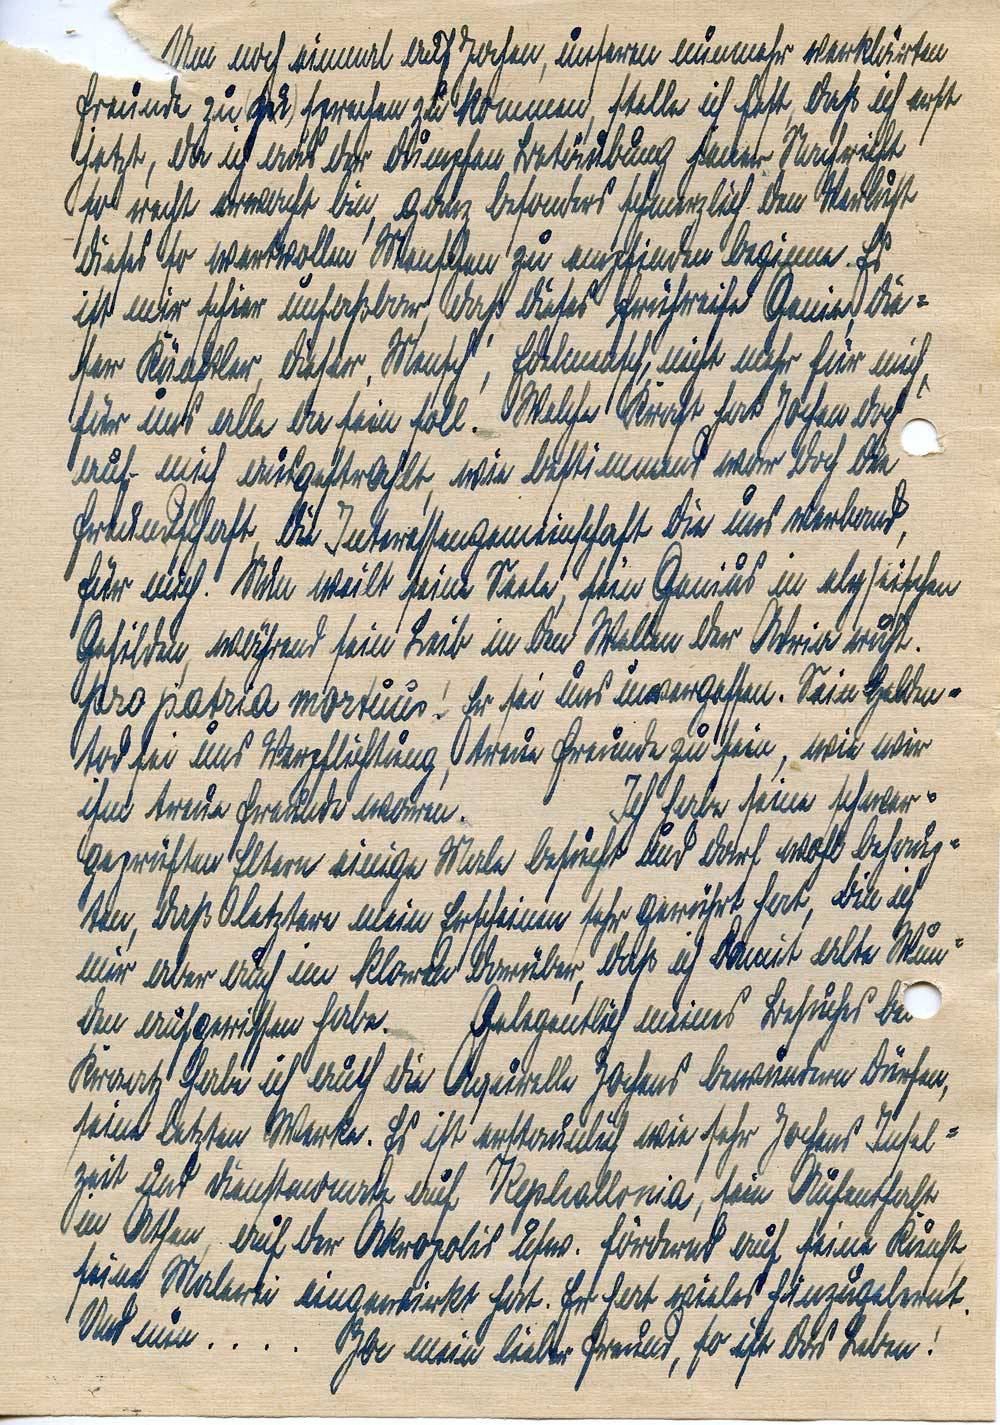 Um noch einmal auf Jochen, unseren nunmehr verklärten
Freunde zu (zu) sprechen zu kommen, stelle ich fest, daß ich erst
jetzt, da ich aus der dumpfen Betäubung jener Nachricht
so recht erwacht bin, ganz besonders schmerzlich den Verlust
dieses so wertvollen Menschen zu empfinden beginne. Es
ist mir schier unfaßbar, daß dieses frühreife Genie, die=
ser Künstler, dieser „Mensch“, Edelmensch, nicht mehr für mich,
für uns alle da sein soll. Welche Kraft hat Jochen doch
auf mich ausgestrahlt, wie bestimmend war doch die
Freundschaft, die Interessengemeinschaft die uns verband,
für mich. Nun weilt seine Seele, sein Genius in elyseischen
Gefilden, während sein Leib in den Wellen der Adria ruht.
pro patria mortuus! Er sei uns unvergessen. Sein Helden=
tod sei uns Verpflichtung, treue Freunde zu sein, wie wir
ihm treue Freunde waren. Ich habe seine schwer=
geprüften Eltern einige Male besucht und darf wohl behaup=
ten, daß letztere mein Erscheinen sehr gerührt hat, bin ich
mir aber auch im klaren darüber, daß ich damit alte Wun=
den aufgerissen habe. Gelegentlich meines Besuches bei
Kraatz habe ich auch die Aquarelle Jochens bewundern dürfen,
seine letzten Werke. Es ist erstaunlich wie sehr Jochens Insel=
zeit und Dienstmonate auf Kephallonia, sein Aufenthalt
in Athen, auf der Akropolis usw. fördernd auf seine Kunst,
seine Malerei eingewirkt hat. Er hat vieles hinzugelernt.
Und nun . . . . Ja mein lieber Freund, so ist das Leben!